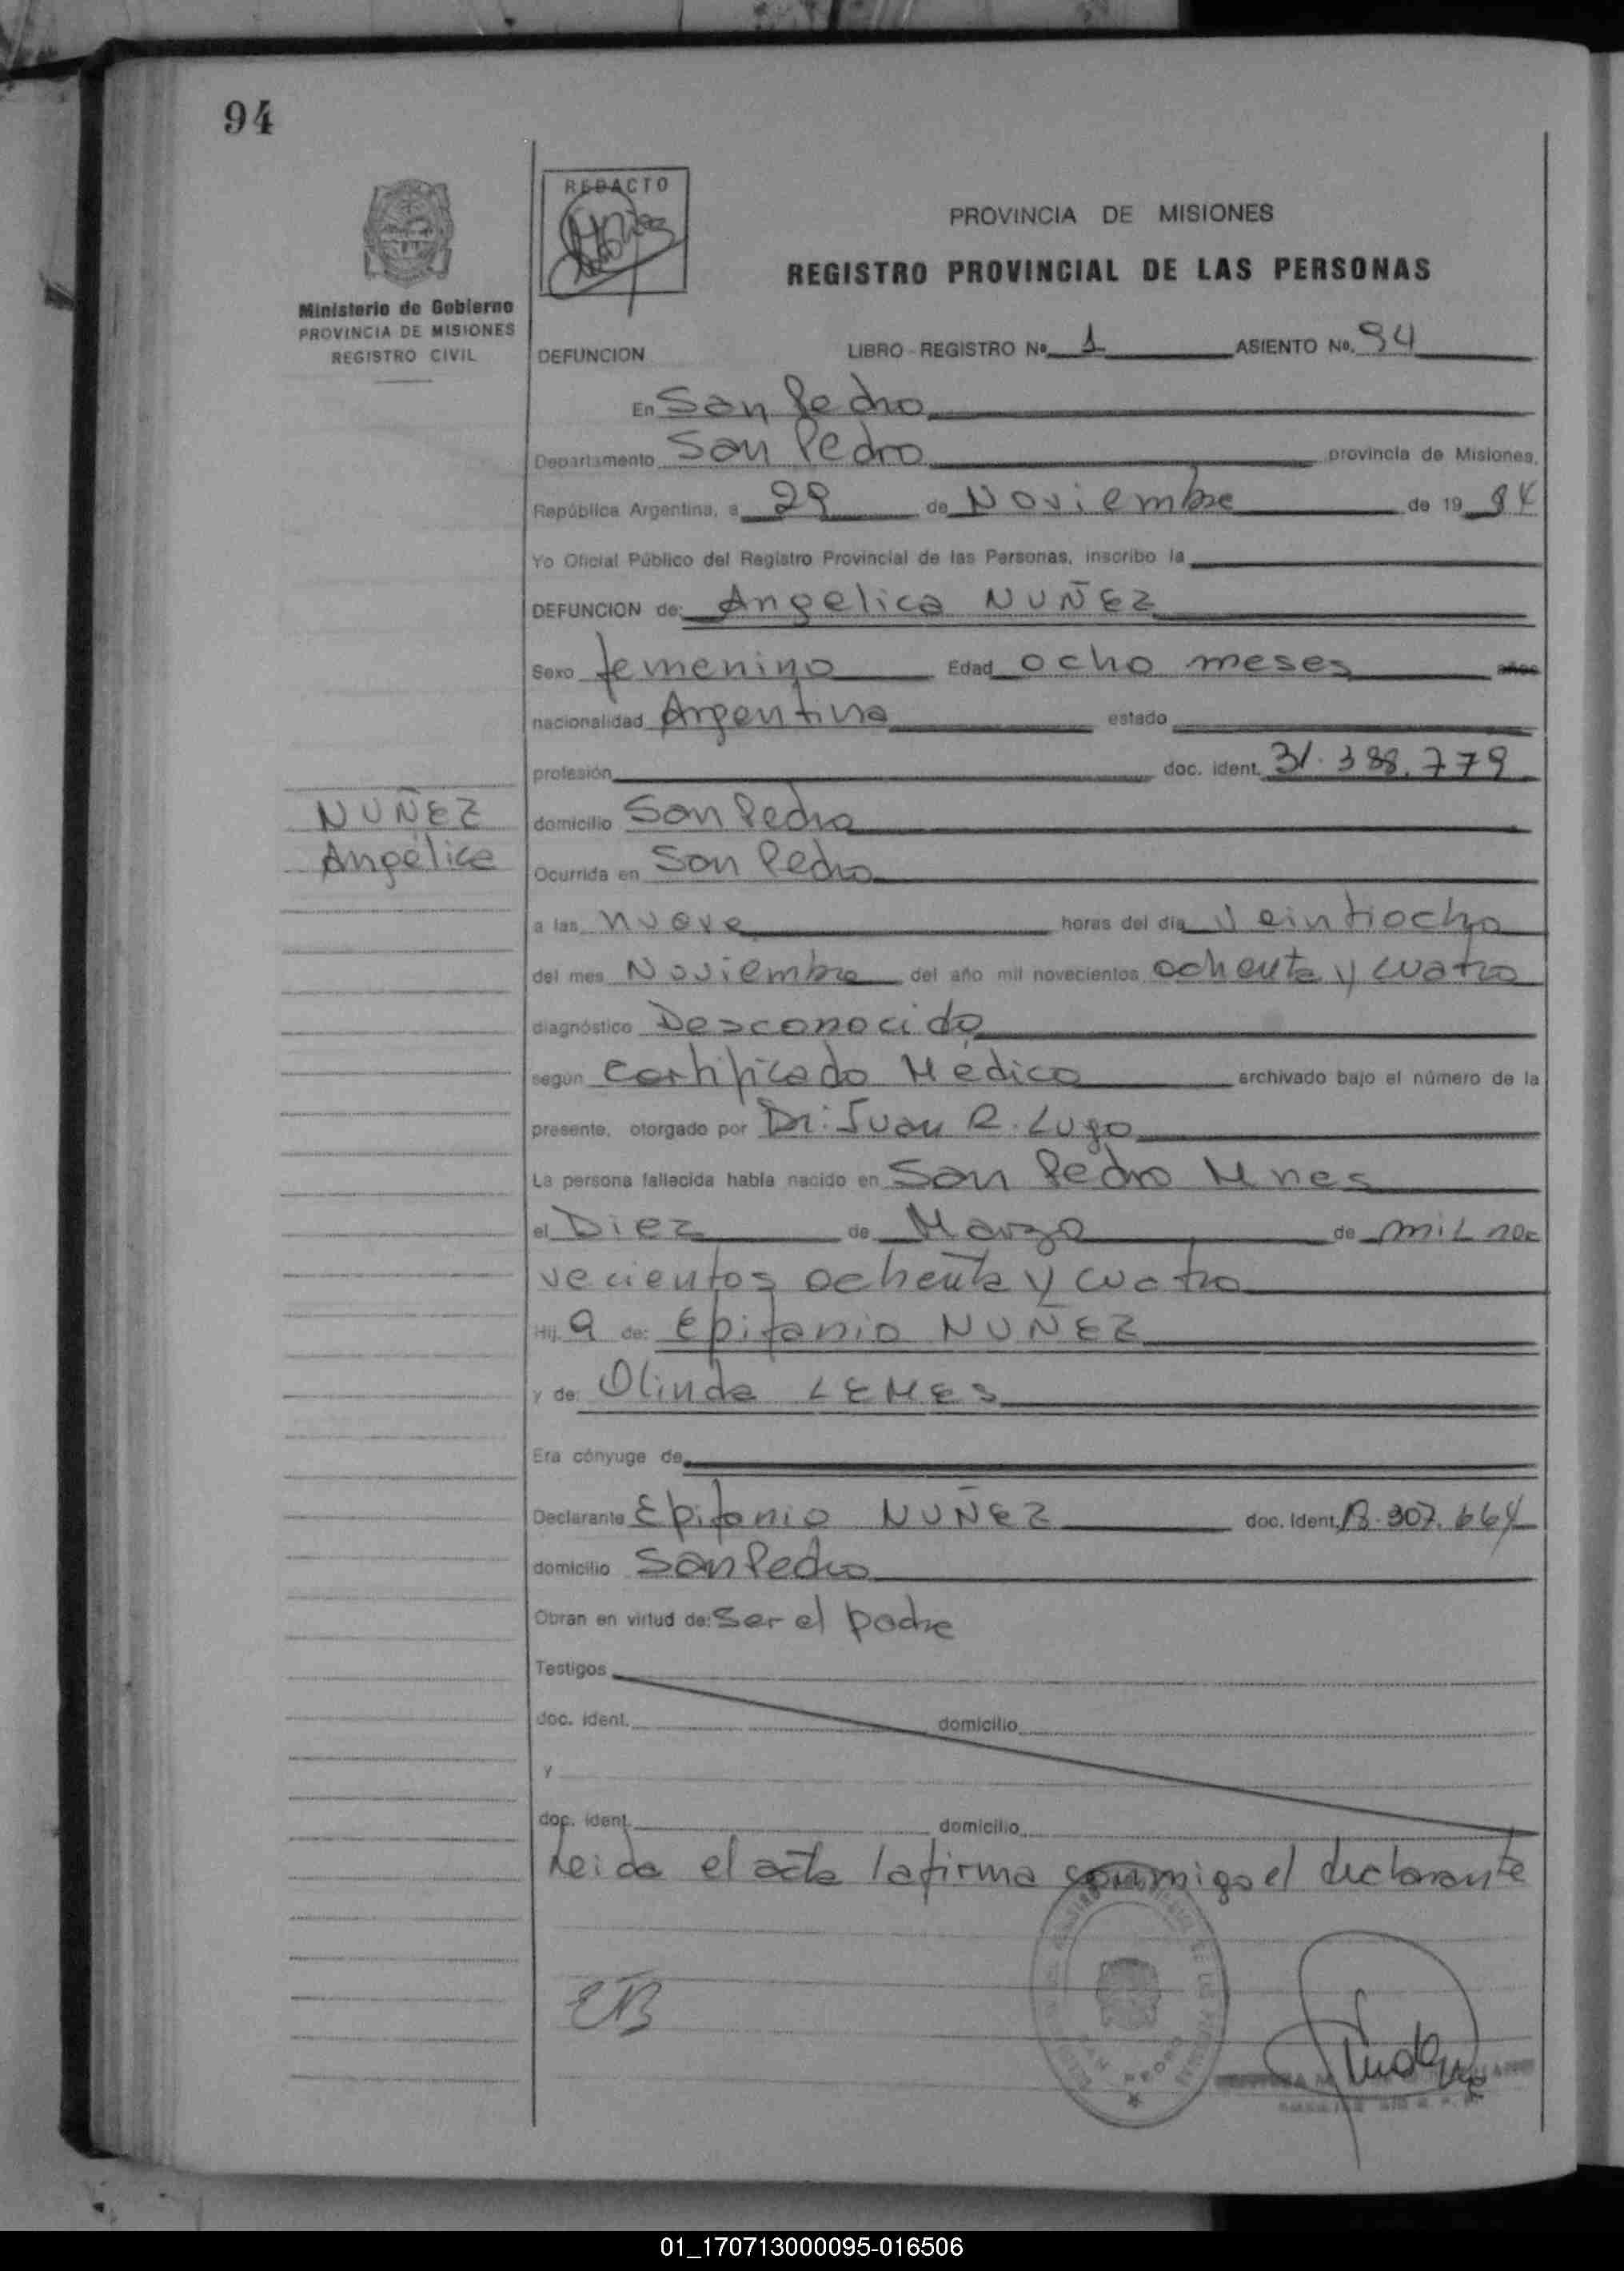 94
REDACTO
PROVINCIA DE MISIONES
REGISTRO PROVINCIAL DE LAS PERSONAS
Ministerio de Gobierno
PROVINCIA DE MISIONES
REGISTRO CIVIL
DEFUNCION LIBRO - REGISTRO Nº 1 ASIENTO Nº 94
En San Pedro
Departamento San Pedro provincia de Misiones,
República Argentina, a 29 de Noviembre de 19 84
Yo Oficial Público del Registro Provincial de las Personas, inscribo la
DEFUNCION de: Angelica NUÑEZ
Sexo femenino Edad ocho meses años
nacionalidad Argentina estado
profesión doc. ident. 31.388.779
NUÑEZ
Angélica
domicilio San Pedro
Ocurrida en San Pedro
a las nueve horas del día Veintiocho
del mes Noviembre del año mil novecientos ochenta y cuatro
diagnóstico Desconocido
según Certificado Médico archivado bajo el número de la
presente, otorgado por Dr: Juan R. Lugo
La persona fallecida había nacido en San Pedro Mnes
el Diez de Marzo de mil no
vecientos ochenta y cuatro
Hij a de: Epifanio NUÑEZ
y de: Olinda LEMES
Era cónyuge de
Declarante Epifanio NUÑEZ doc. Ident. 13.307.664
domicilio San Pedro
Obran en virtud de: Ser el padre
Testigos
doc. ident. domicilio
y
doc. ident. domicilio
Leida el acta la firma conmigo el declarante
SAN PEDRO
01_170713000095-016506